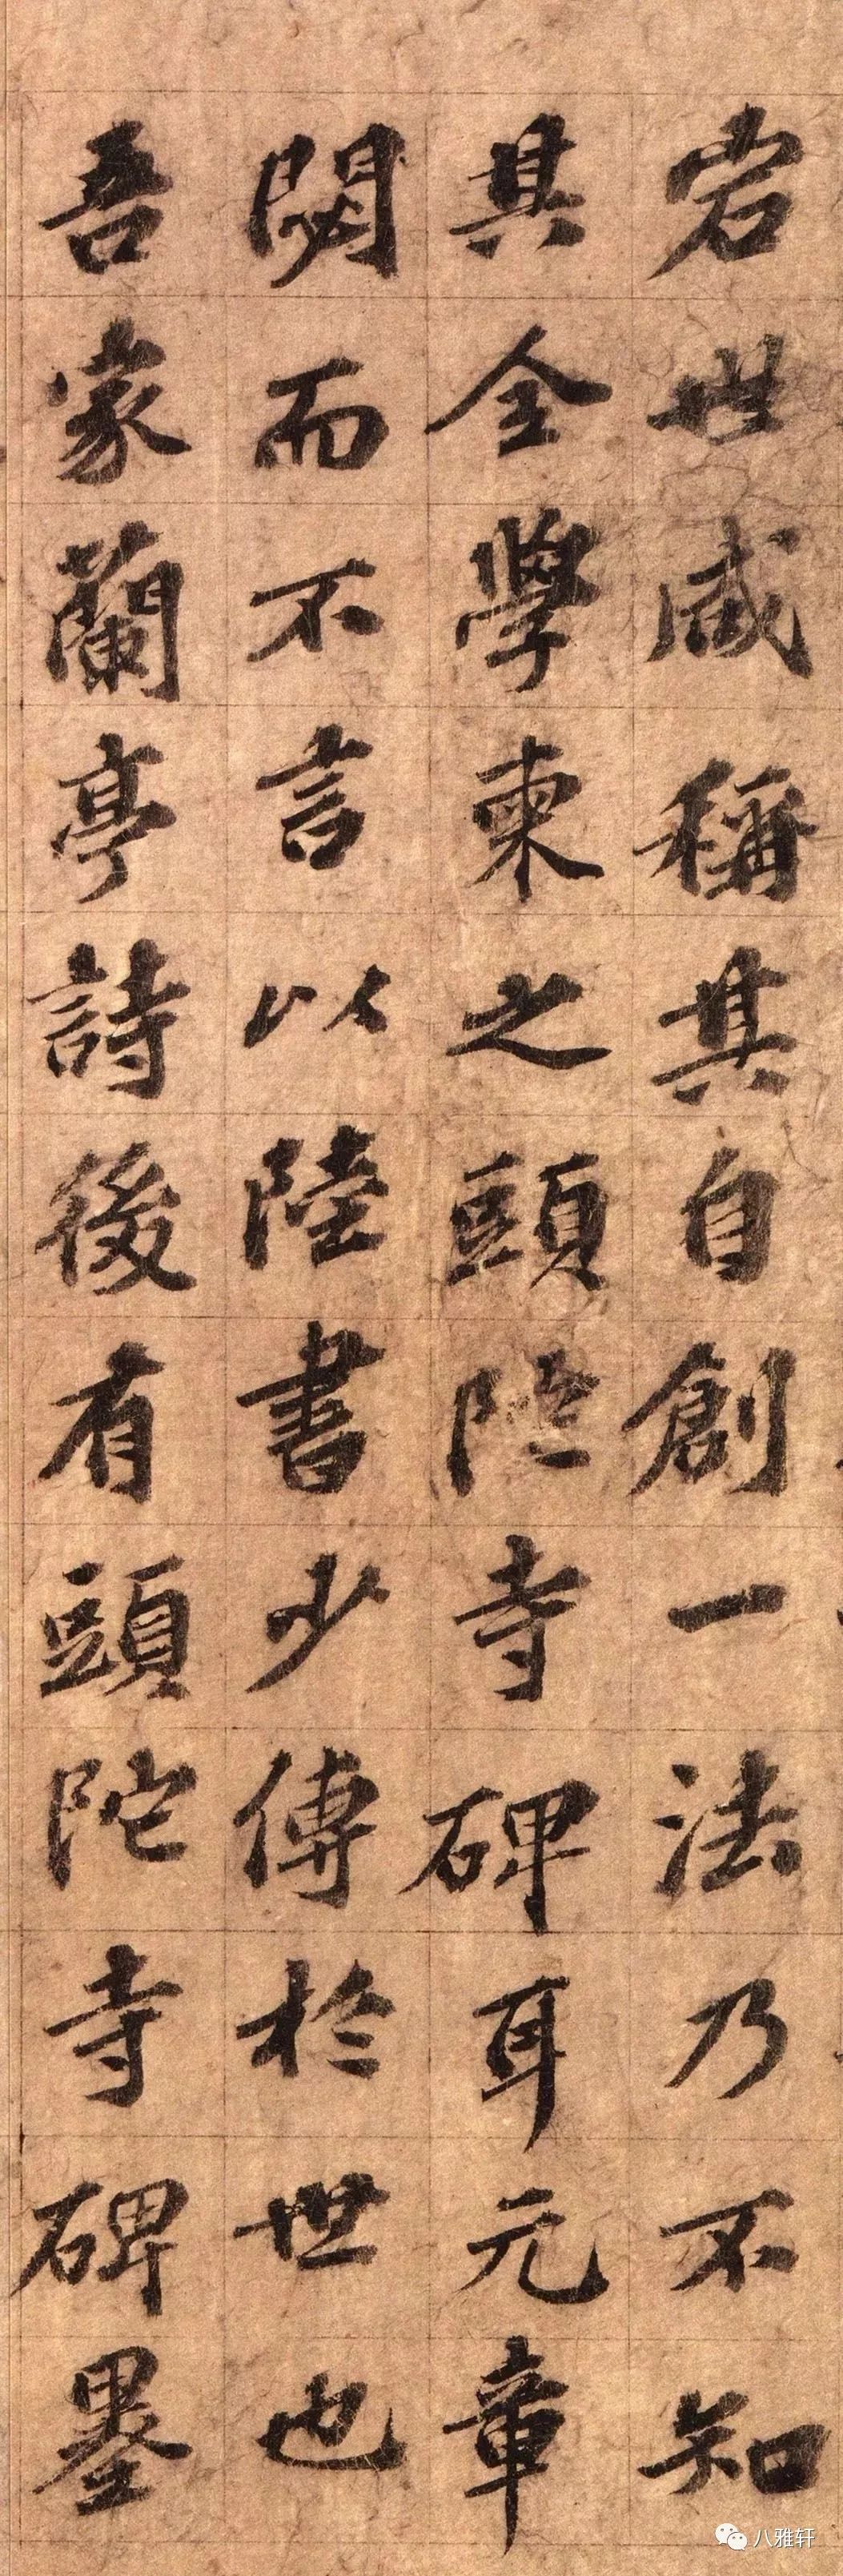 世咸稱其自創一法乃不知
其全學柬之頭陀寺碑耳元章
閟而不言以陸書少傳於世也
吾家蘭亭詩後有頭陀寺碑墨
八雅轩